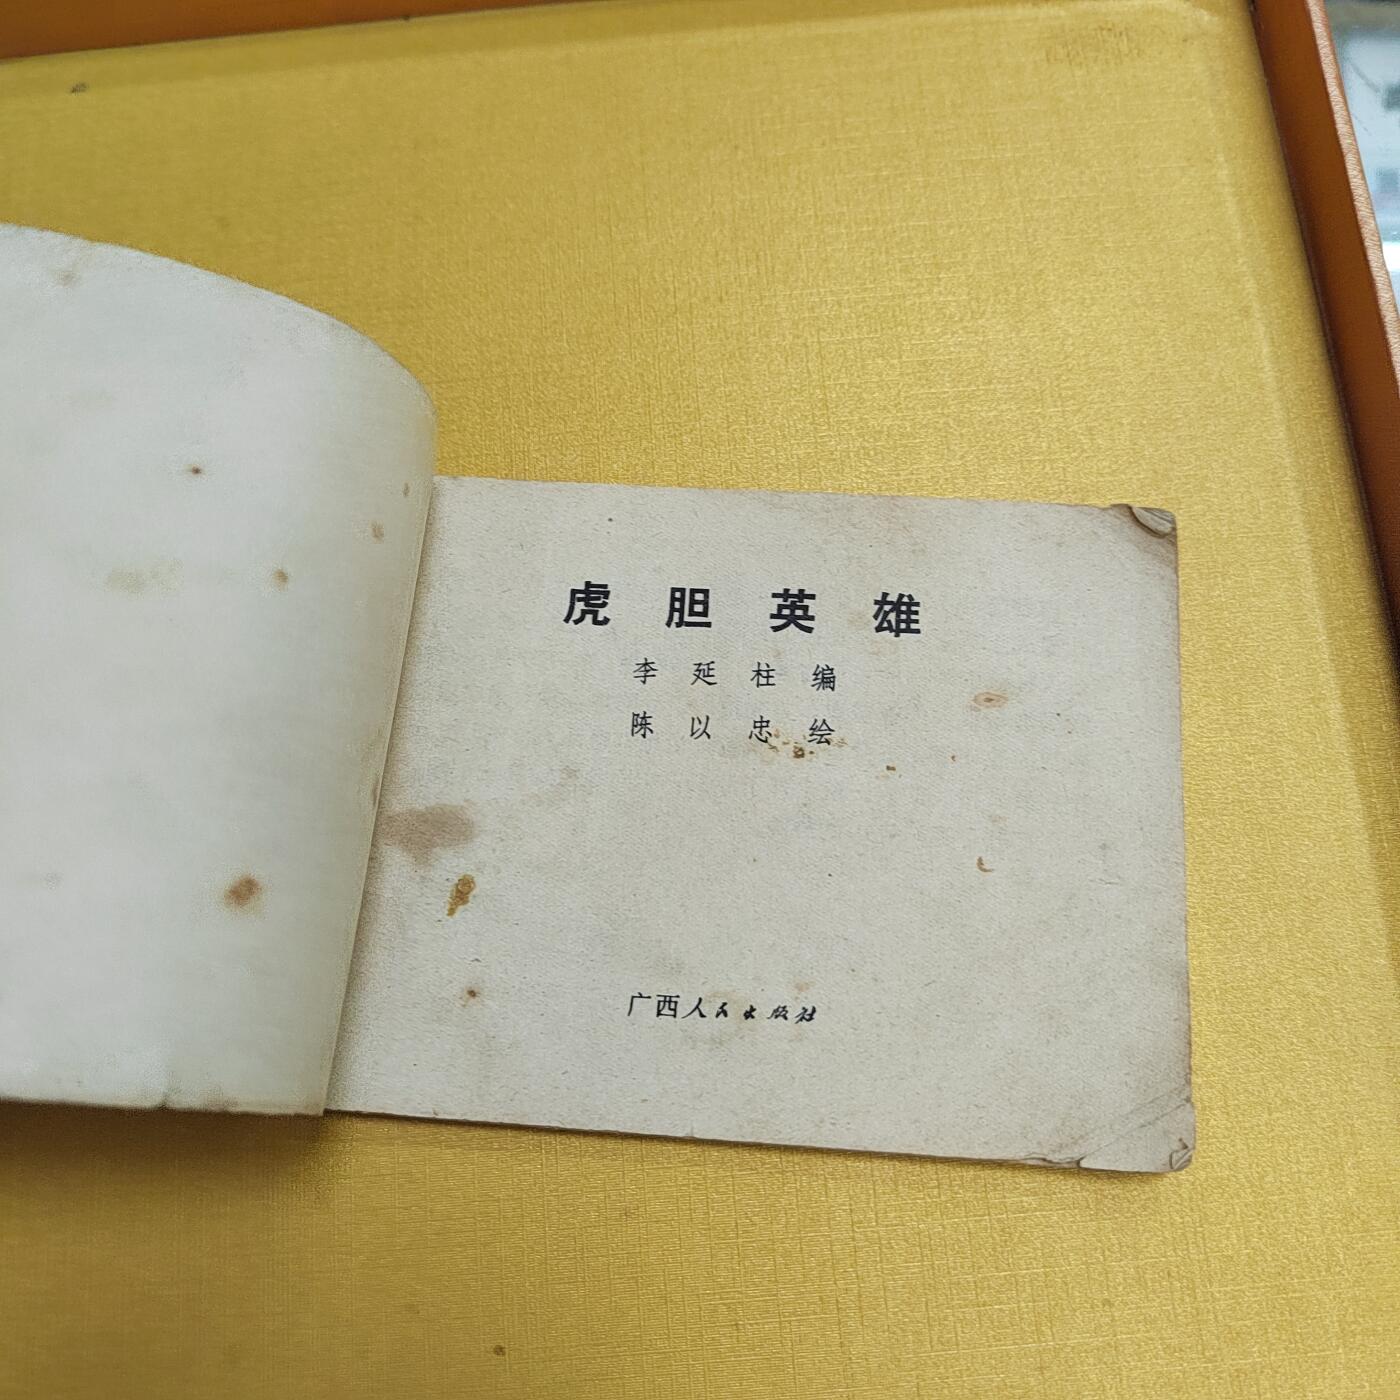 虎胆英雄
李延柱编
陈以忠绘
广西人民出版社